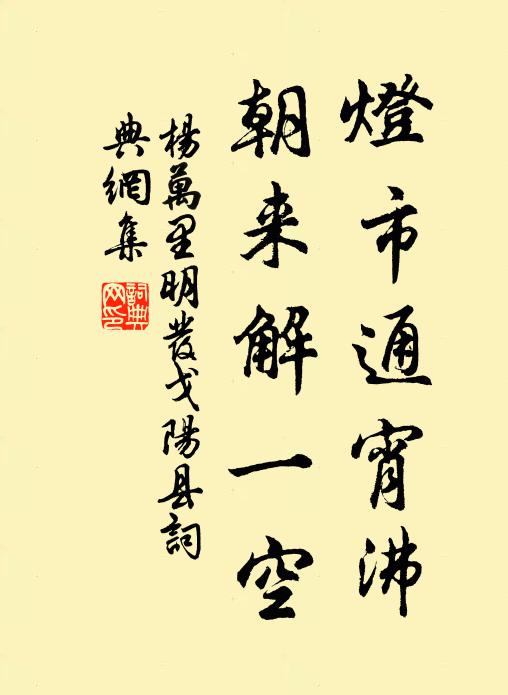 燈市通宵沸
朝来解一空
楊萬里明發弋陽县詞
典網集
詞典
网印